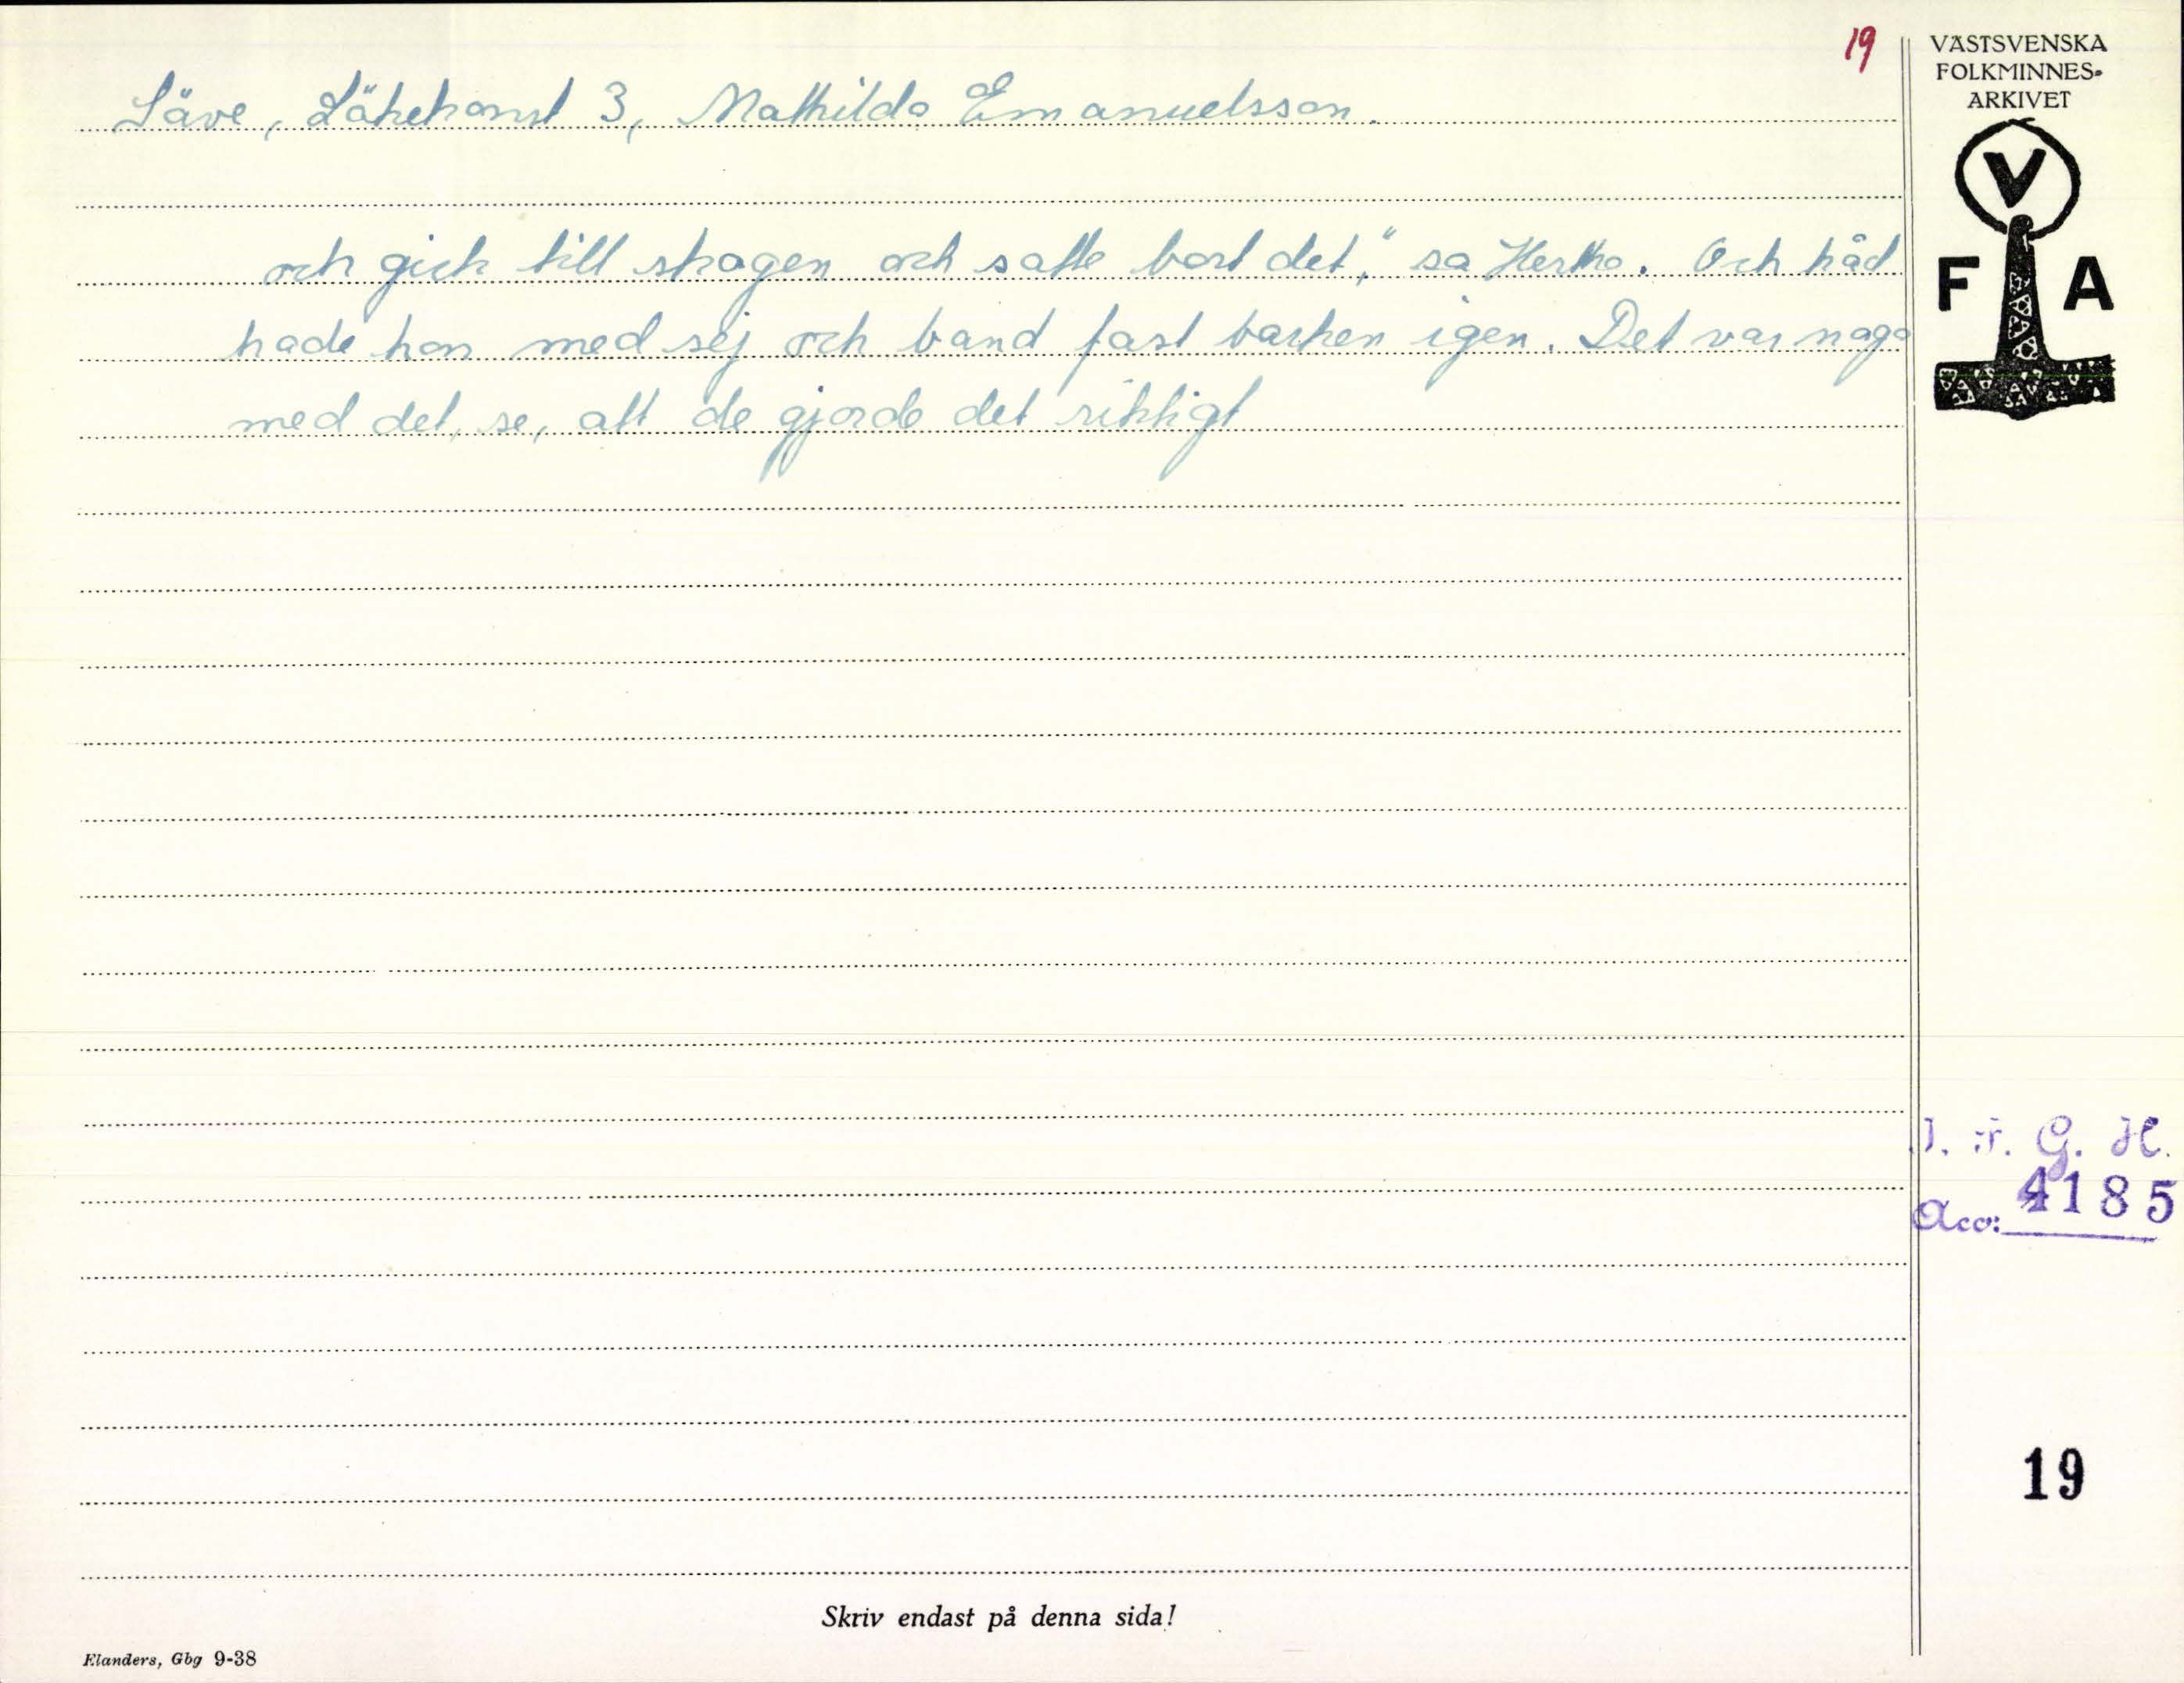 19
VÄSTSVENSKA
FOLKMINNES-
ARKIVET
V
F A
Säve, Läkekonst 3, Mathilda Emanuelsson.
och gick till skogen och satte bort det," sa Hertha. Och tråd
hade hon med sej och band fast barken igen. Det var någo
med det, se, att de gjorde det riktigt
I. F. G. H.
Acc: 4185
19
Skriv endast på denna sida!
Elanders, Gbg 9-38